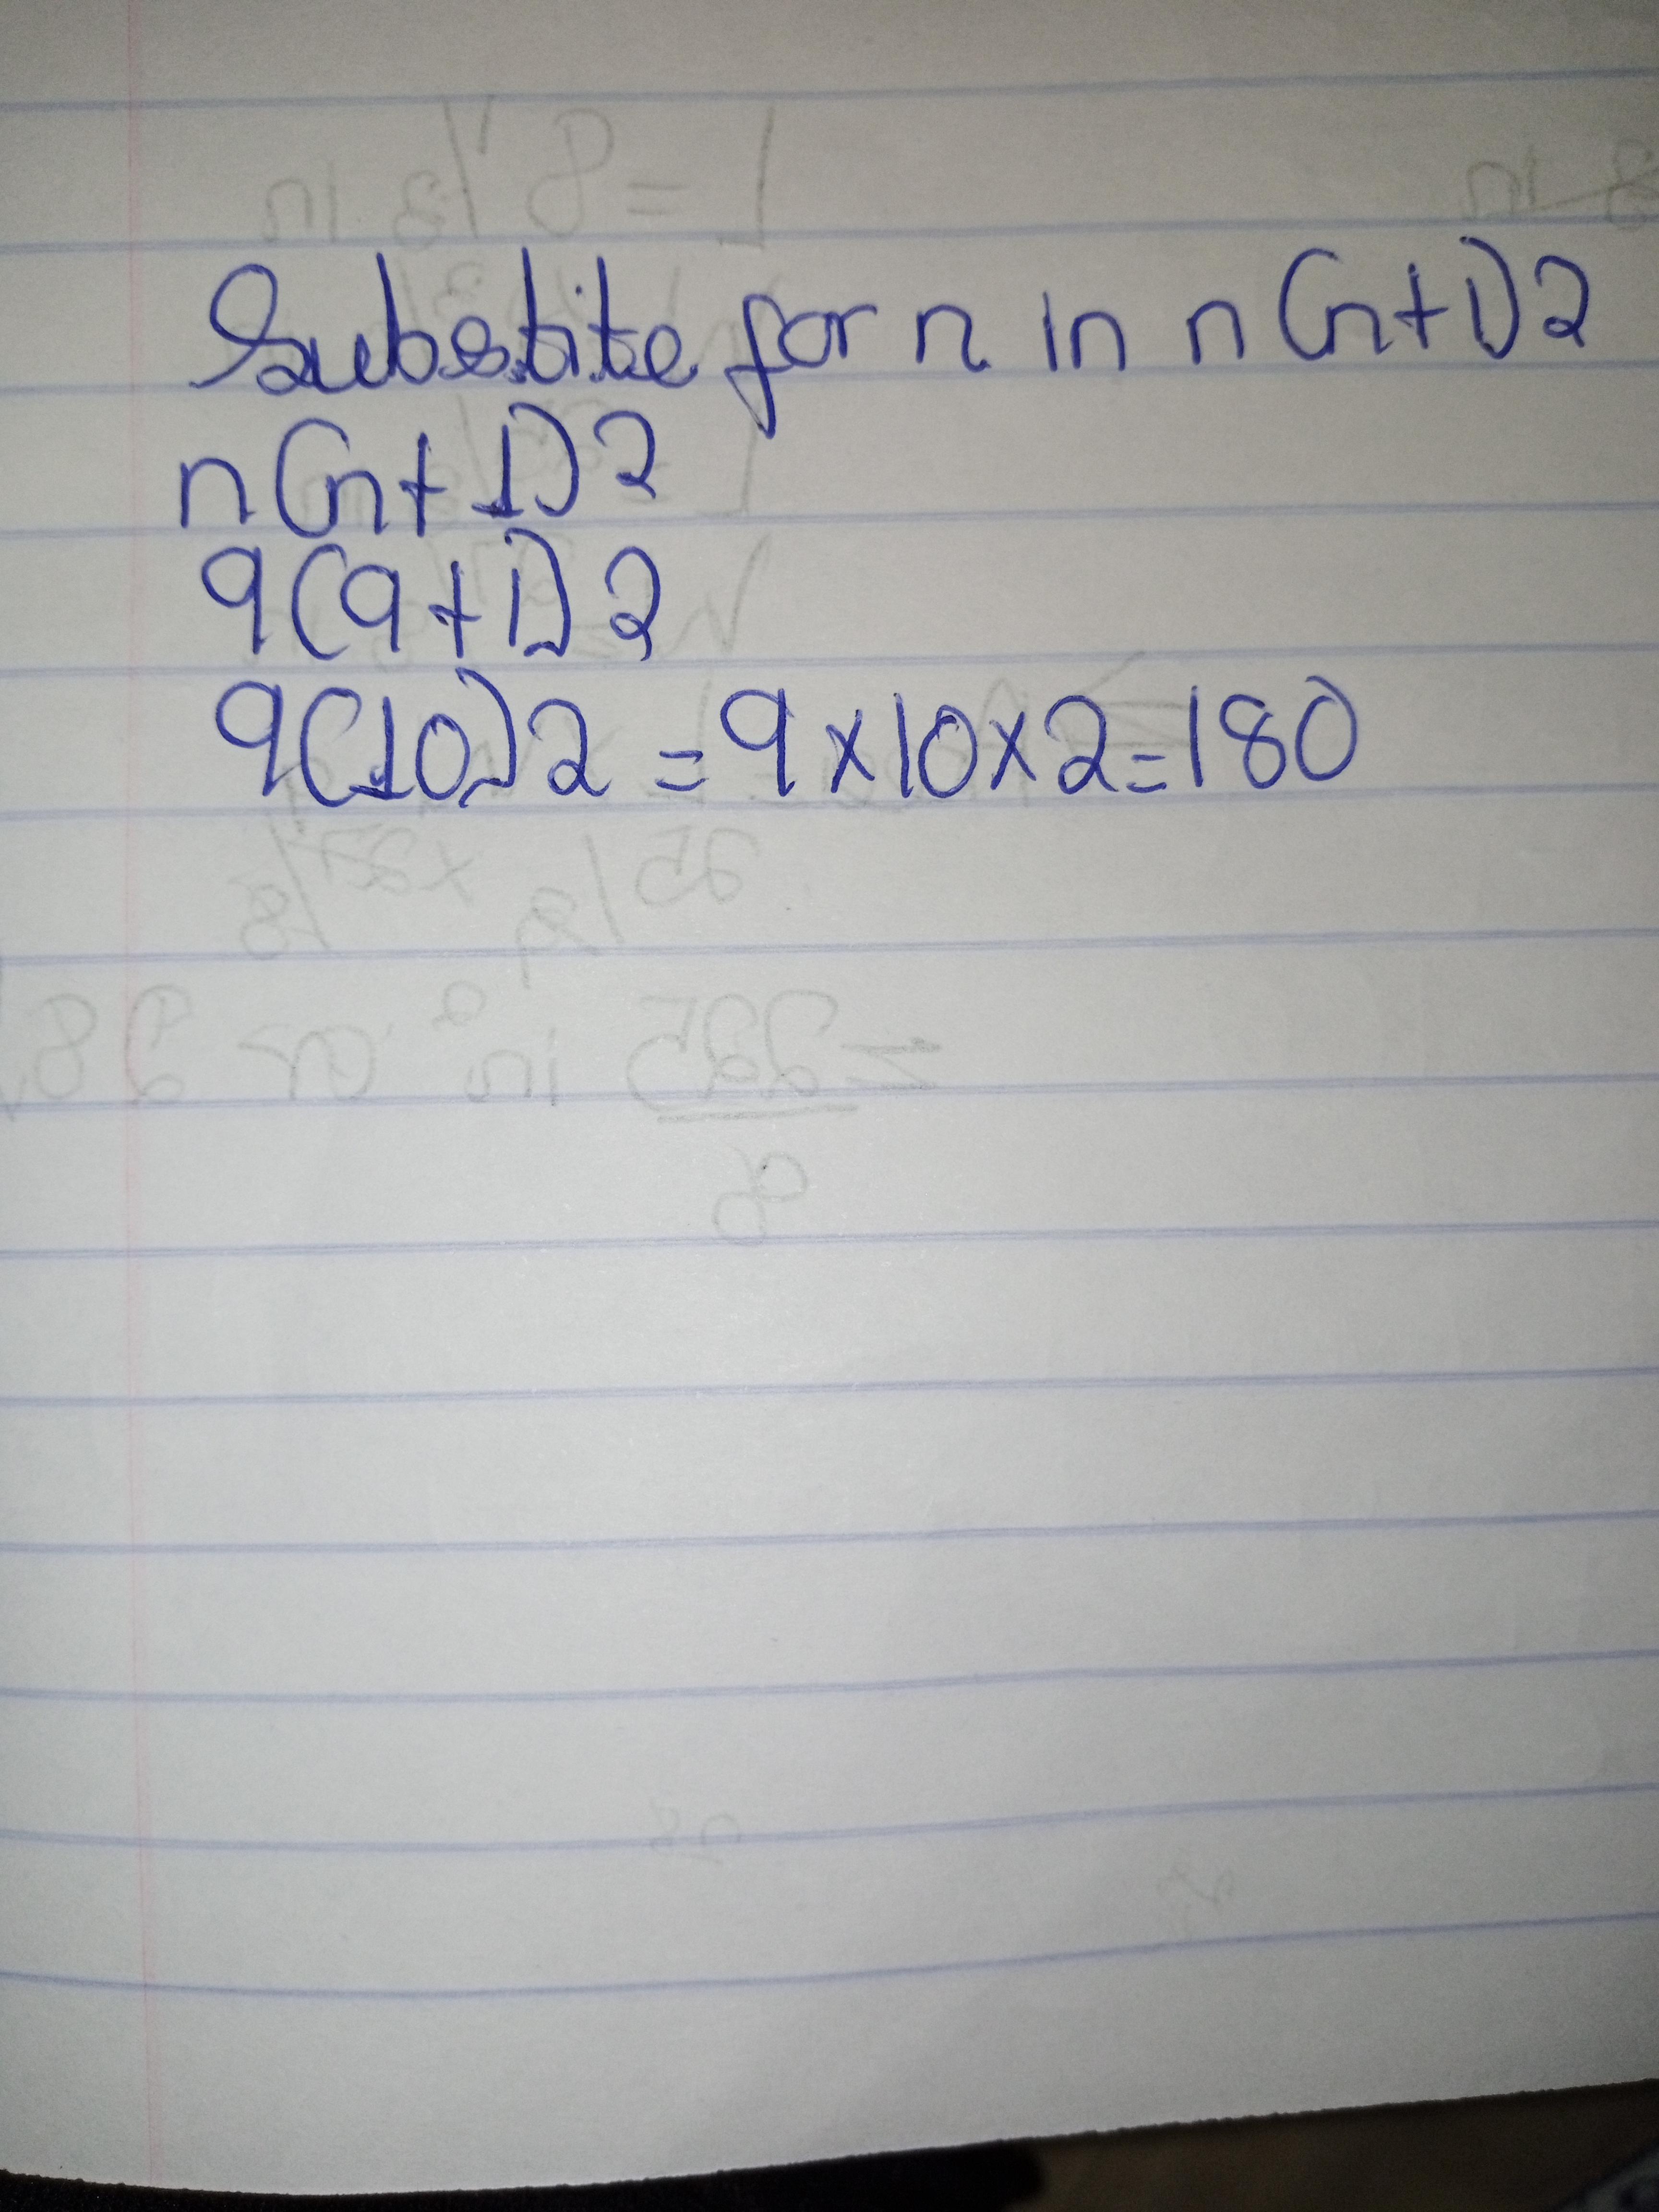 Substite for n in n(n+1)2
n(n+1)2
9(9+1)2
9(10)2 = 9x10x2=180